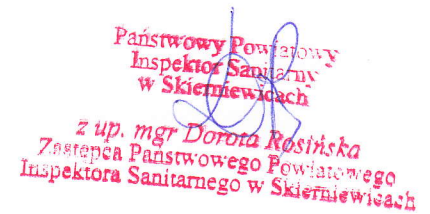 Państwowy Powiatowy
Inspektor Sanitarny
w Skierniewicach
z up. mgr Dorota Rosińska
Zastępca Państwowego Powiatowego
Inspektora Sanitarnego w Skierniewicach